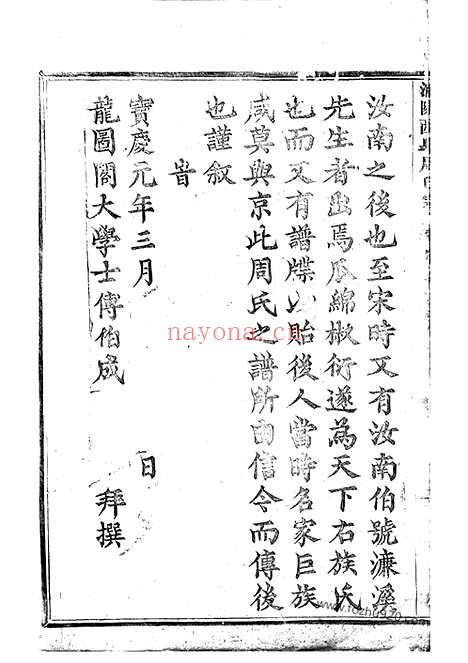 汝南之後也至宋時又有汝南伯號濂溪
先生者出焉瓜綿椒衍遂為天下右族氏
也而又有譜牒以貽後人當時名家巨族
咸莫與京此周氏之譜所由信今而傳後
也謹叙
旹
寶慶元年三月　日
龍圖閣大學士傅伯成　拜撰
nayona.cn